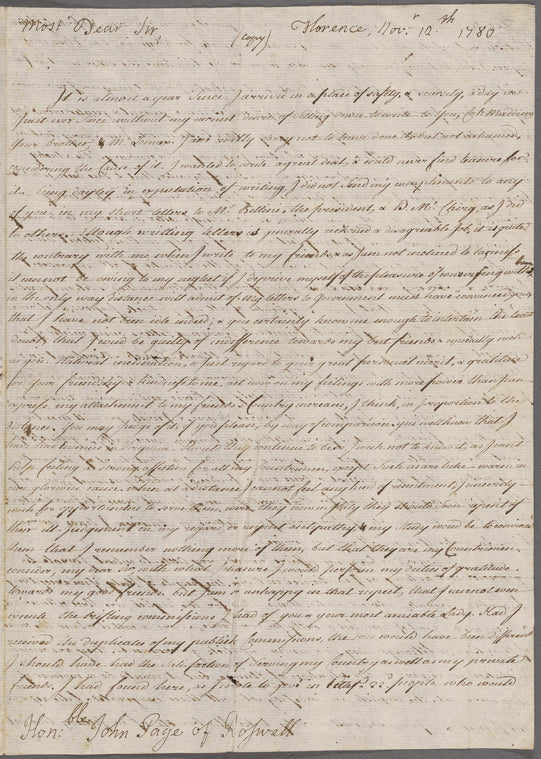 Most Dear Sir, (Copy) Florence, Nov.r 12.th 1780
It is almost a year since I arrived in a place of safety, & scarcely a day has
past ever since without my ardent desire of sitting down to write to you, Col. Maddison
Your brother, & Mr. I am really sorry not to have done it, but not ashamed,
considering the cause of it. I wanted to write a great deal & could never find leasure for
it. being day by day in expectation of writing, I did not send my compliments to any
of you in my short letters to Mr. Bellini, the president, & D. Mc. Clurg, as I did
to others. Though writing letters is generally reckoned a disagreable Job, it is quite
the contrary with me when I write to my friends, & as I am not inclined to laziness
it cannot be owing to my neglect if I deprive myself of the pleasure of conversing with them
in the only way distance will admit of. My letters to Government must have convinced you
that I have not been idle indeed, & you certainly know me enough to entertain the least
doubt, that I could be guilty of indifference towards my best friends & especially such
as you. Natural inclination, a just regard to your great personal merit, & gratitude
for your friendship & kindness to me, act now on my feelings with more power than I can
express. my attachment to my friends & Country increase, I think, in proportion to the
distance. You may judge of it, if you please, by my you well know that I
have had enemies in Virginia. Should they continue to be I wish not to know it, as I can't
help feeling a strong affection for all my Countrimen, except such as are luke-warm in
our glorious cause. Even at a distance I can not feel any kind of resentment; I sincerely
wish for opportunities to serve even were they never so guilty they should soon repent of
their ill Judgement on my regard or neglect and pathy & my study would be to convince
them that I remember nothing more of them, but that they are my Countrimen.
consider my dear Sir with what pleasure I would perform my duties of gratitude
towards my good friends. but I am so unhappy in that respect, that I can not even
execute the triffling commissions I had of you & your most amiable Lady. Had I
received the duplicate of my publick Commissions, the case would have been different
I should have had the satisfaction of serving my Country as well as my private
friends. I had found here, as I wrote to you in people who would
Hon.ble John Page of Roswell